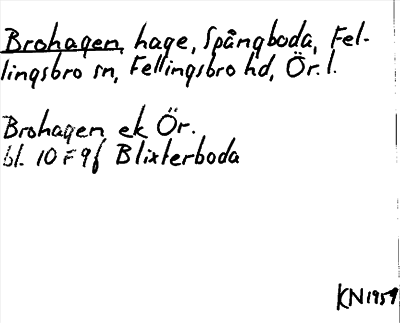 Brohagen, hage, Spångboda, Fel-
lingsbro sn, Fellingsbro hd, Ör. l.
Brohagen ek Ör.
bl. 10 F 9f Blixterboda
KN 1959